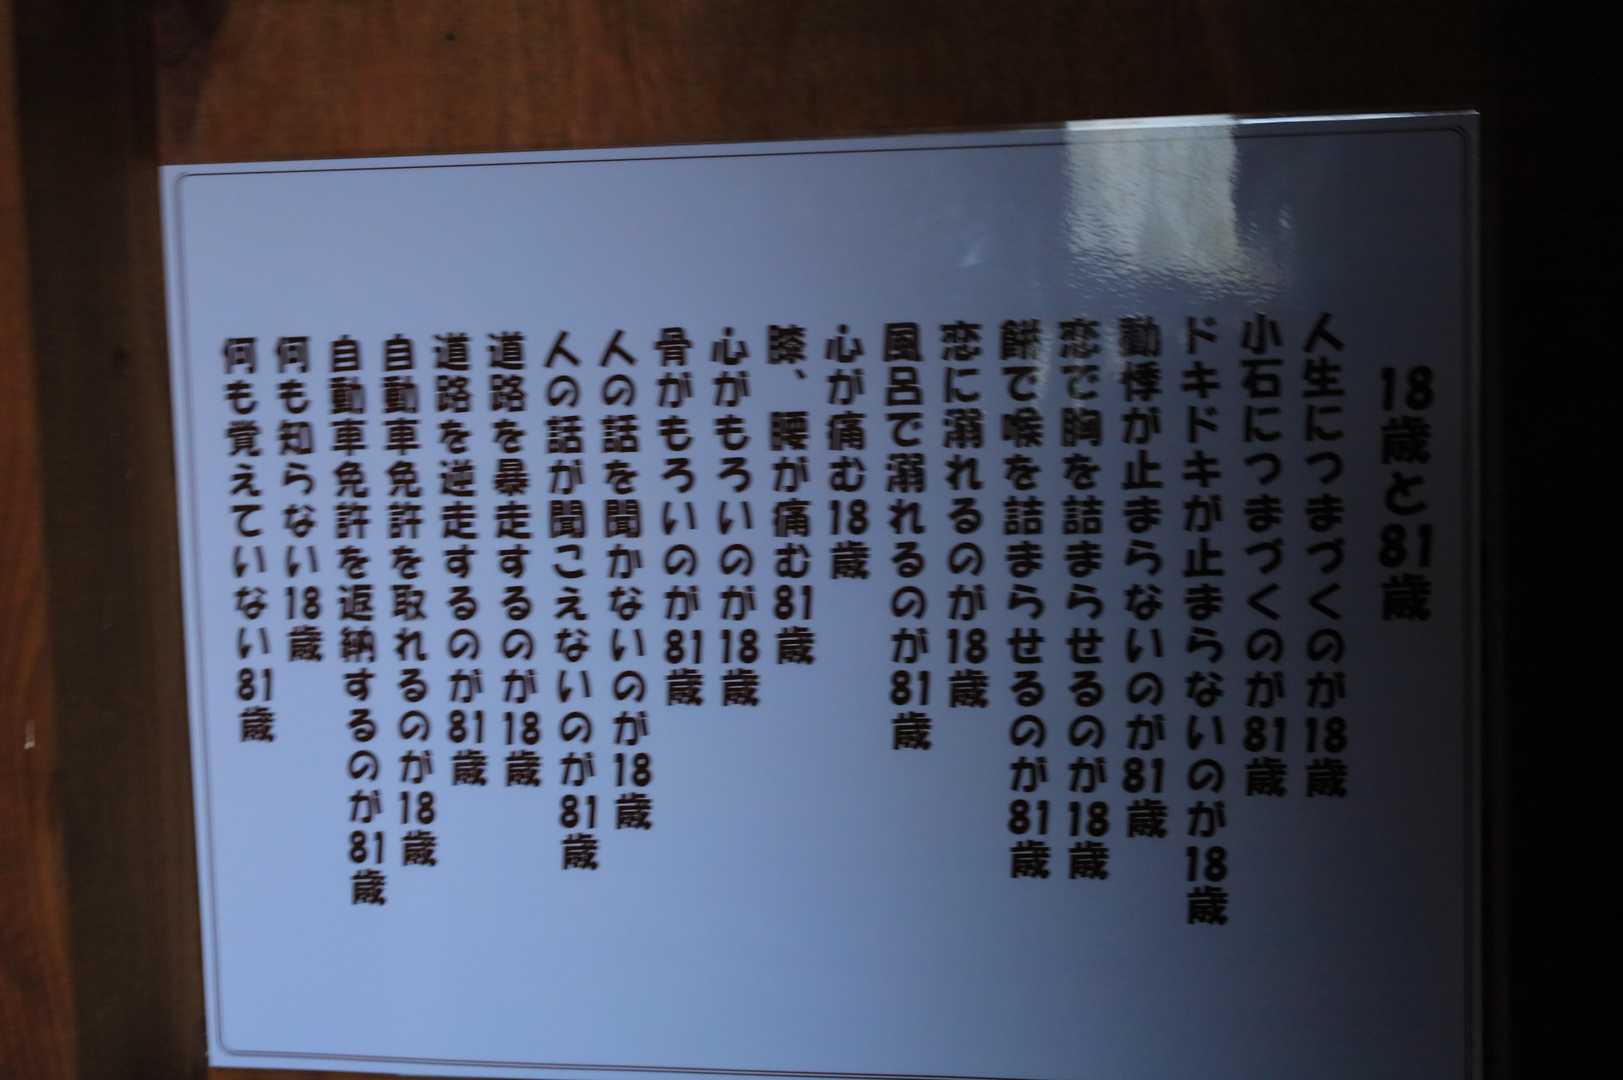 18歳と81歳
人生につまづくのが18歳
小石につまづくのが81歳
ドキドキが止まらないのが18歳
動悸が止まらないのが81歳
恋で胸を詰まらせるのが18歳
餅で喉を詰まらせるのが81歳
恋に溺れるのが18歳
風呂で溺れるのが81歳
心が痛む18歳
膝、腰が痛む81歳
心がもろいのが18歳
骨がもろいのが81歳
人の話を聞かないのが18歳
人の話が聞こえないのが81歳
道路を暴走するのが18歳
道路を逆走するのが81歳
自動車免許を取れるのが18歳
自動車免許を返納するのが81歳
何も知らない18歳
何も覚えていない81歳